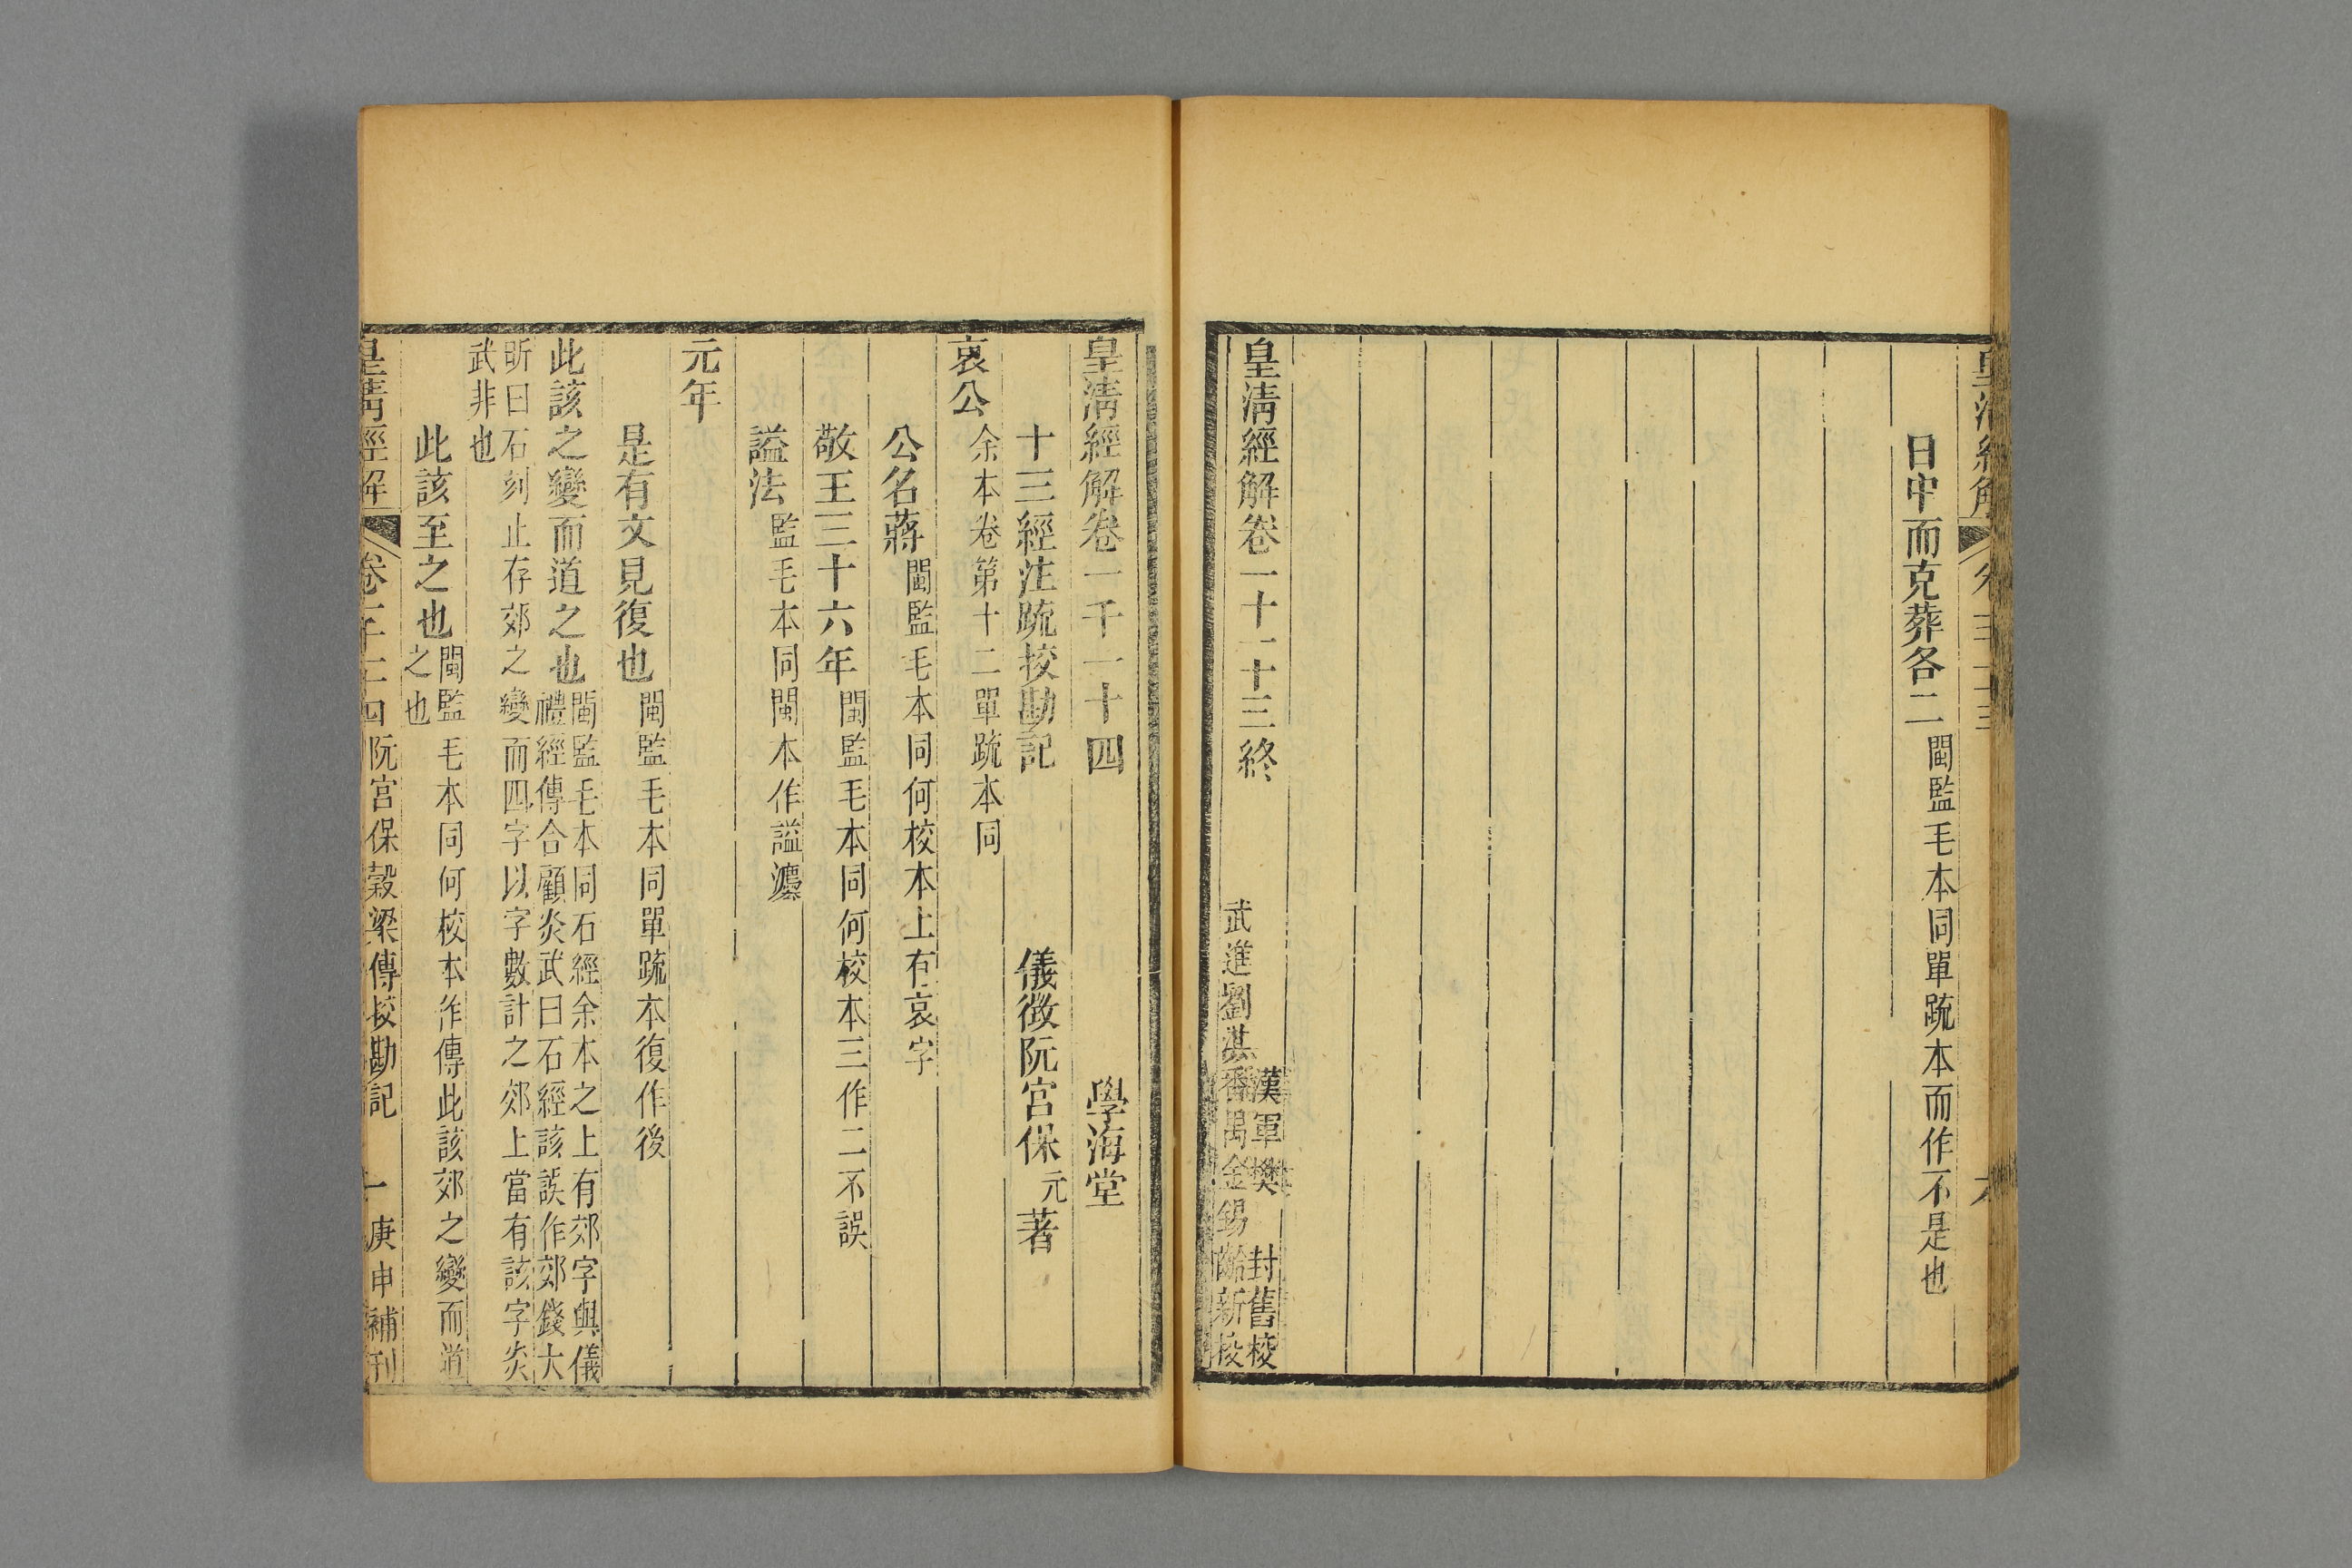 皇清經解
日中而克葬各二閩監毛本同單疏本而作不是也
皇清經解卷一千一十三終
漢軍樊封舊校
武進劉淇
番禺金錫齡新校
皇清經解卷一千一十四
學海堂
十三經注疏挍勘記
儀徵阮宮保元著
哀公余本卷第十二單疏本同
公名蔣閩監毛本同何校本上有哀字
敬王三十六年閩監毛本同何校本三作二不誤
謚法監毛本同閩本作謚灋
元年
是有文見復也閩監毛本同單疏本復作後
此該之變而道之也閩監毛本同石經余本之上有郊字與儀
禮經傳合顧炎武曰石經該誤作郊錢大
昕曰石刻止存郊之變而四字以字數計之郊上當有該字炎
武非也
此該至之也閩監毛本同何校本作傳此該郊之變而道
之也
皇清經解
卷一千十四
阮宮保穀梁傳挍勘記
一
庚申補刊